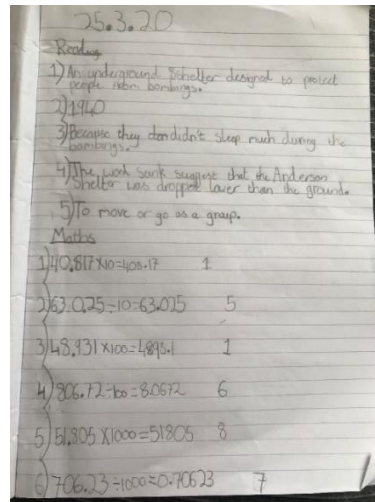 25.3.20
Reading
1) An underground Shelter designed to protect
people from bombings.
2) 1940
3) Because they didn't sleep much during the
bombings.
4) The work sunk suggest that the Anderson
Shelter was dropped lower than the ground.
5) To move or go as a group.
Maths
1) 40.817 x10=408.17 1
2) 63.0.25÷10=63.025 5
3) 48.931 x100=4893.1 1
4) 806.72÷100=8.0672 6
5) 51.805 X1000=51805 8
6) 706.23÷1000=0.70623 7